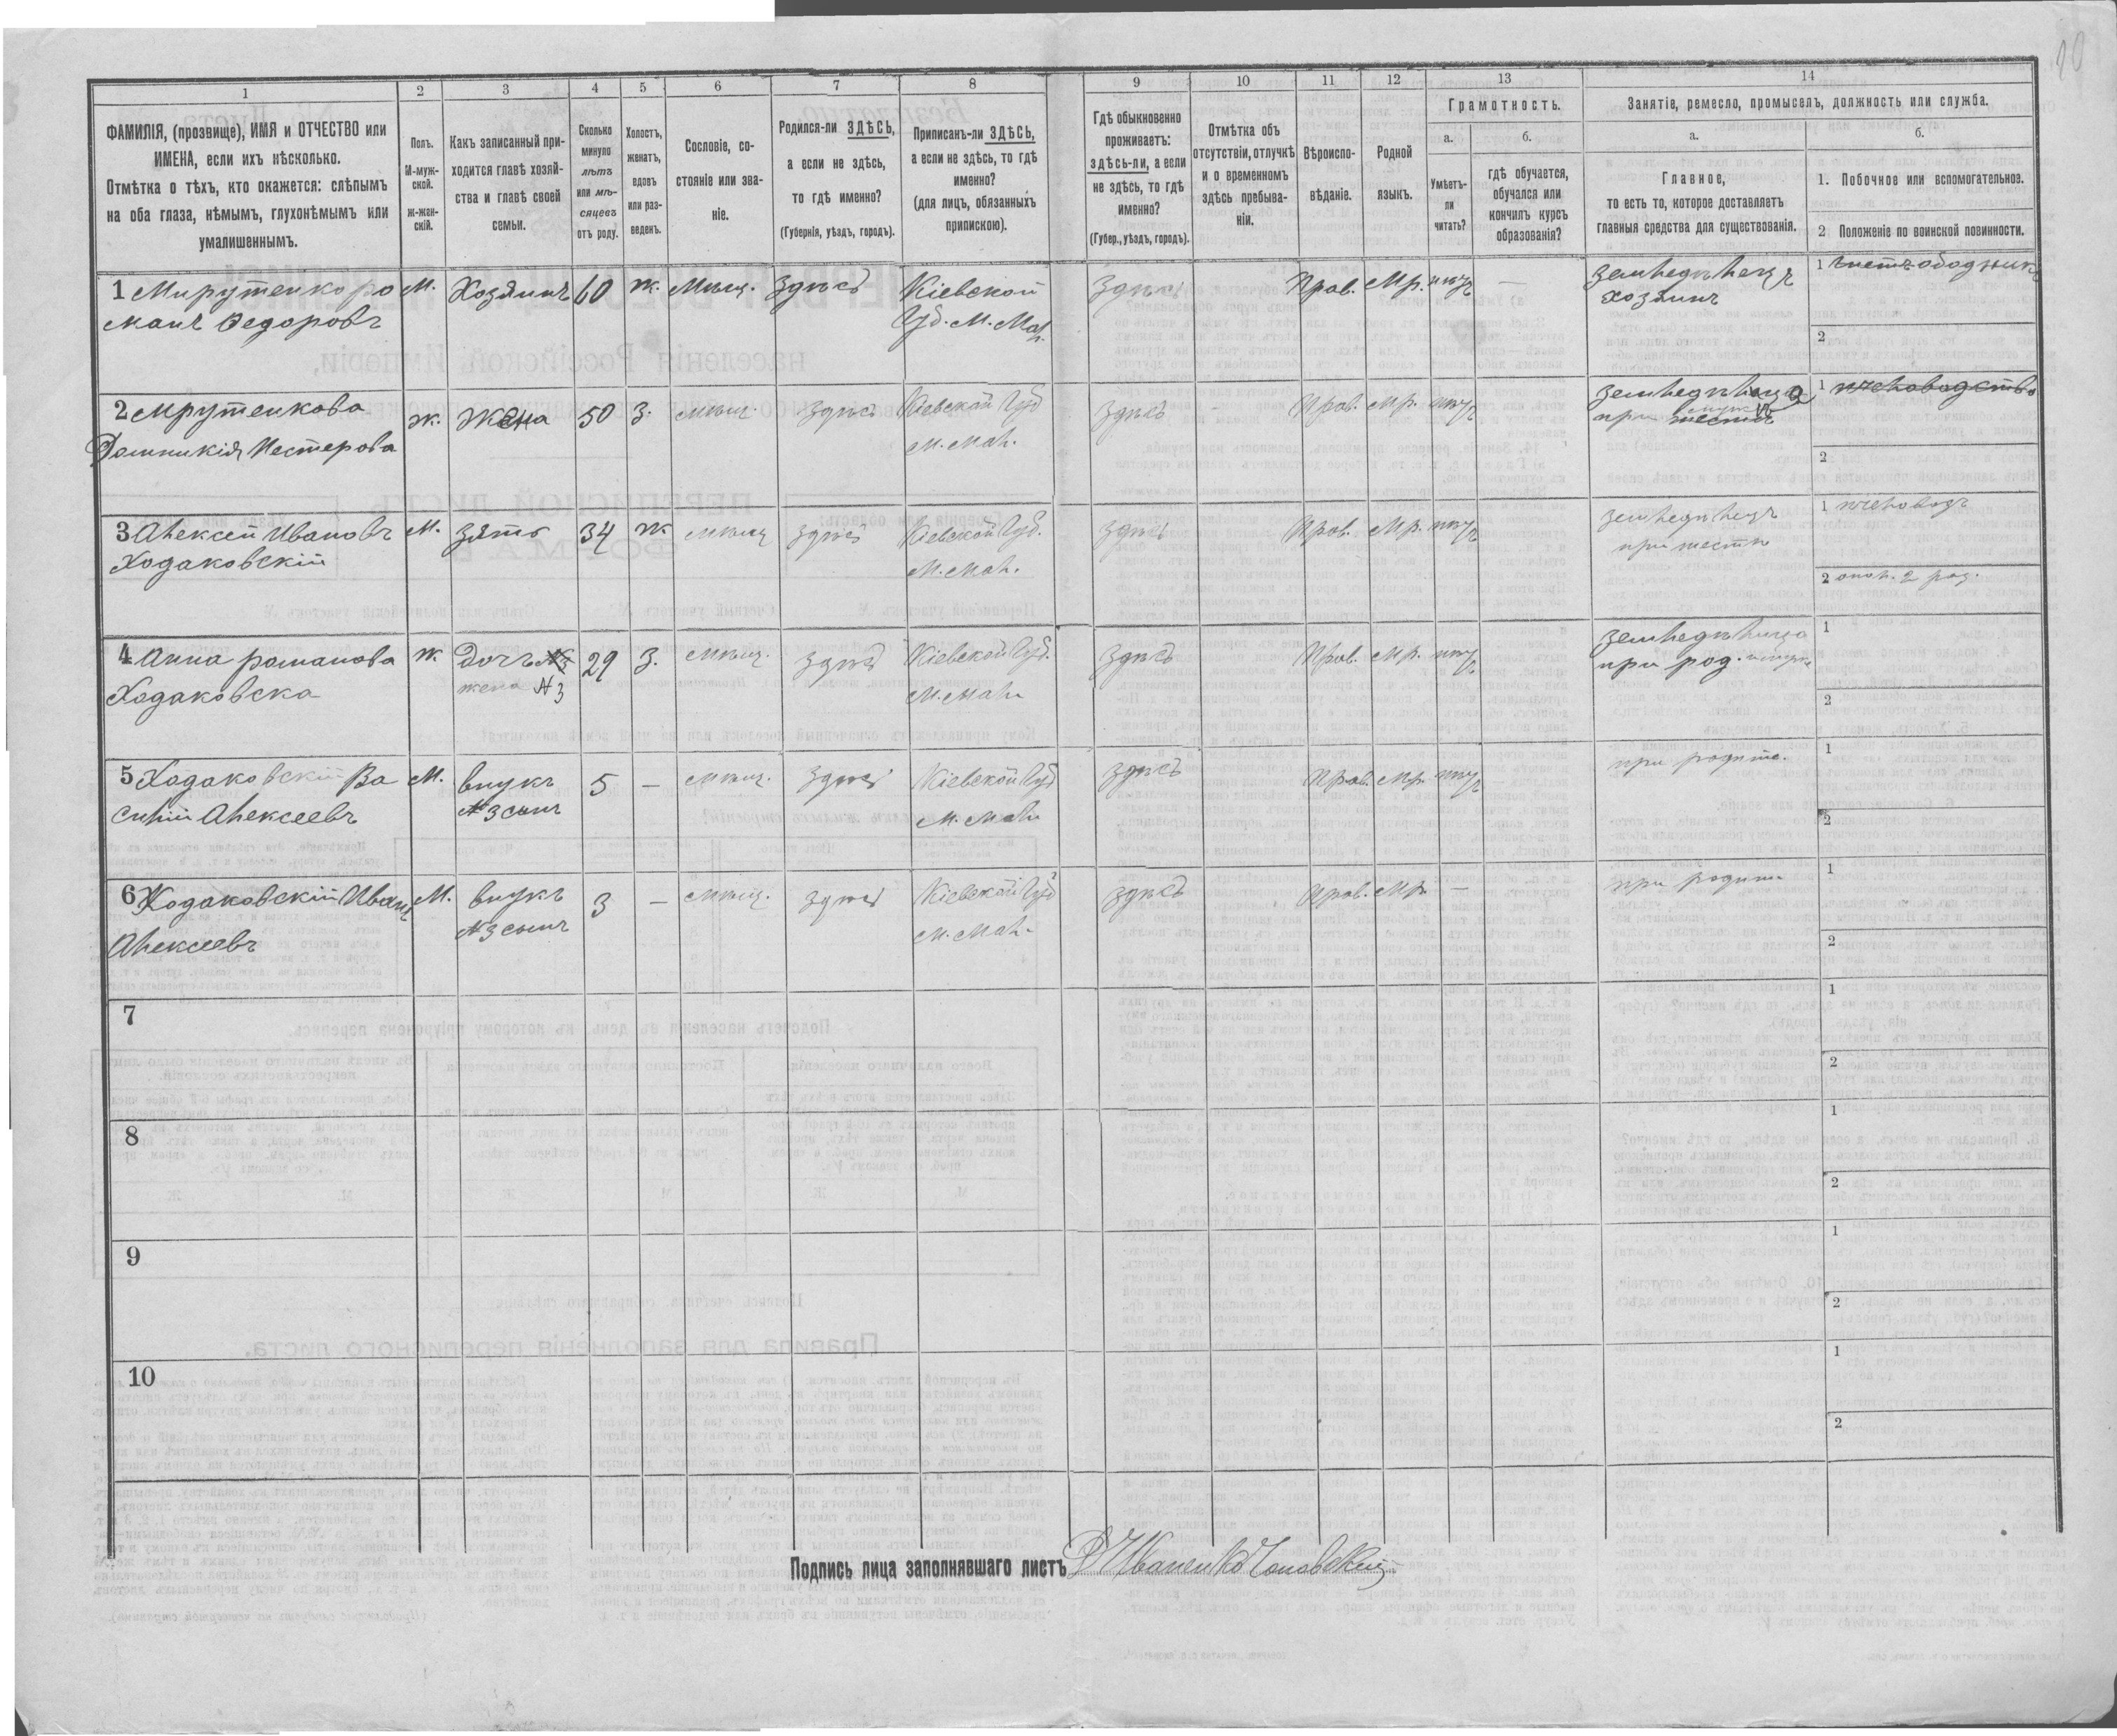 1
2
3
4
5
6
7
8
9
10
11
12
13
14
ФАМИЛІЯ, (прозвище), ИМЯ и ОТЧЕСТВО или
ИМЕНА, если ихъ нѣсколько.
Отмѣтка о тѣхъ, кто окажется: слѣпымъ
на оба глаза, нѣмымъ, глухонѣмымъ или
умалишеннымъ.
Полъ.
М-муж-
ской.
ж-жен-
скій.
Какъ записанный при-
ходится главѣ хозяй-
ства и главѣ своей
семьи.
Сколько
минуло
лѣтъ
или мѣ-
сяцевъ
отъ роду.
Холостъ,
женатъ,
вдовъ
или раз-
веденъ.
Сословіе, со-
стояніе или зва-
ніе.
Родился-ли ЗДѢСЬ,
а если не здѣсь,
то гдѣ именно?
(Губернія, уѣздъ, городъ).
Приписанъ-ли ЗДѢСЬ,
а если не здѣсь, то гдѣ
именно?
(для лицъ, обязанныхъ
припискою).
Гдѣ обыкновенно
проживаетъ:
здѣсь-ли, а если
не здѣсь, то гдѣ
именно?
(Губер., уѣздъ, городъ).
Отмѣтка объ
отсутствіи, отлучкѣ
и о временномъ
здѣсь пребыва-
ніи.
Вѣроиспо-
вѣданіе.
Родной
языкъ.
Грамотность.
а.
Умѣетъ-
ли
читать?
б.
гдѣ обучается,
обучался или
кончилъ курсъ
образованія?
Занятіе, ремесло, промыселъ, должность или служба.
а.
Главное,
то есть то, которое доставляетъ
главныя средства для существованія.
б.
1. Побочное или вспомогательное.
2 Положеніе по воинской повинности.
1 Мирутенко Ро
манъ Федоровъ
М.
Хозяинъ
60
ж.
Мѣщ.
Здѣсь
Кіевской
Губ. М. Мал.
Здѣсь
Прав.
Мр.
нѣтъ
—
Земледѣлецъ
хозяинъ
1
2
2 Мрутенкова
Домникія Нестерова
ж.
Жена
50
З.
мѣщ.
здѣсь
Кіевской Губ
м. Мал.
здѣсь
Прав.
Мр.
нѣтъ
при
1 пчеловодство
2
3 Алексей Ивановъ
Ходаковскій
М.
зять
34
ж
мѣщ
здѣсь
Кіевской Губ.
М. Мал.
здѣсь
Прав.
Мр.
нѣтъ
земледѣлецъ
при тестѣ
1 пчеловодъ
2 опол. 2 раз.
4 Анна романова
Ходаковска
ж.
Дочь
жена №3
29
З.
мѣщ.
здѣсь
Кіевской Губ.
М. Мал.
здѣсь
Прав.
Мр.
нѣтъ
земледѣлица
при род.
1
2
5 Ходаковскій Ва
силій Алексеевъ
М.
внукъ
№3 сынъ
5
—
мѣщ.
здѣсь
Кіевской Губ
М. Мал.
здѣсь
Прав.
Мр.
нѣтъ
при родите.
1
2
6 Ходаковскій Иванъ
Алексеевъ
М.
внукъ
№3 сынъ
3
—
мѣщ.
здѣсь
Кіевской Губ
М. Мал.
здѣсь
Прав.
Мр.
—
при родит
1
2
7
1
2
8
1
2
9
1
2
10
1
2
Подпись лица заполнявшаго листъ